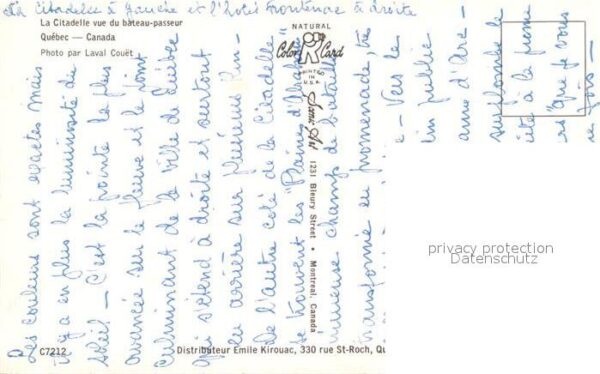 La Citadelle à gauche et l'hotel Frontenac à droite
La Citadelle vue du bateau-passeur
Québec — Canada
Photo par Laval Couët
NATURAL
Color Card
PRINTED IN U.S.A.
1231 Bleury Street • Montreal, Canada
Les couleurs sont exactes mais
il y a en plus la luminosité du
soleil — C'est la pointe la plus
avancée sur le fleuve et le point
culminant de la ville de Québec
qui s'étend à droite et surtout
en arrière sur plusieurs km —
De l'autre coté de la Citadelle
se trouvent les "Plaines d'Abraham"
immense champs de bataille
transformé en promenade, très
e — Vers le
in public
anne d'Arc —
sur fonde le
ète à la prome
es "que je vous
C7212
Distributeur Emile Kirouac, 330 rue St-Roch, Qu
privacy protection
Datenschutz